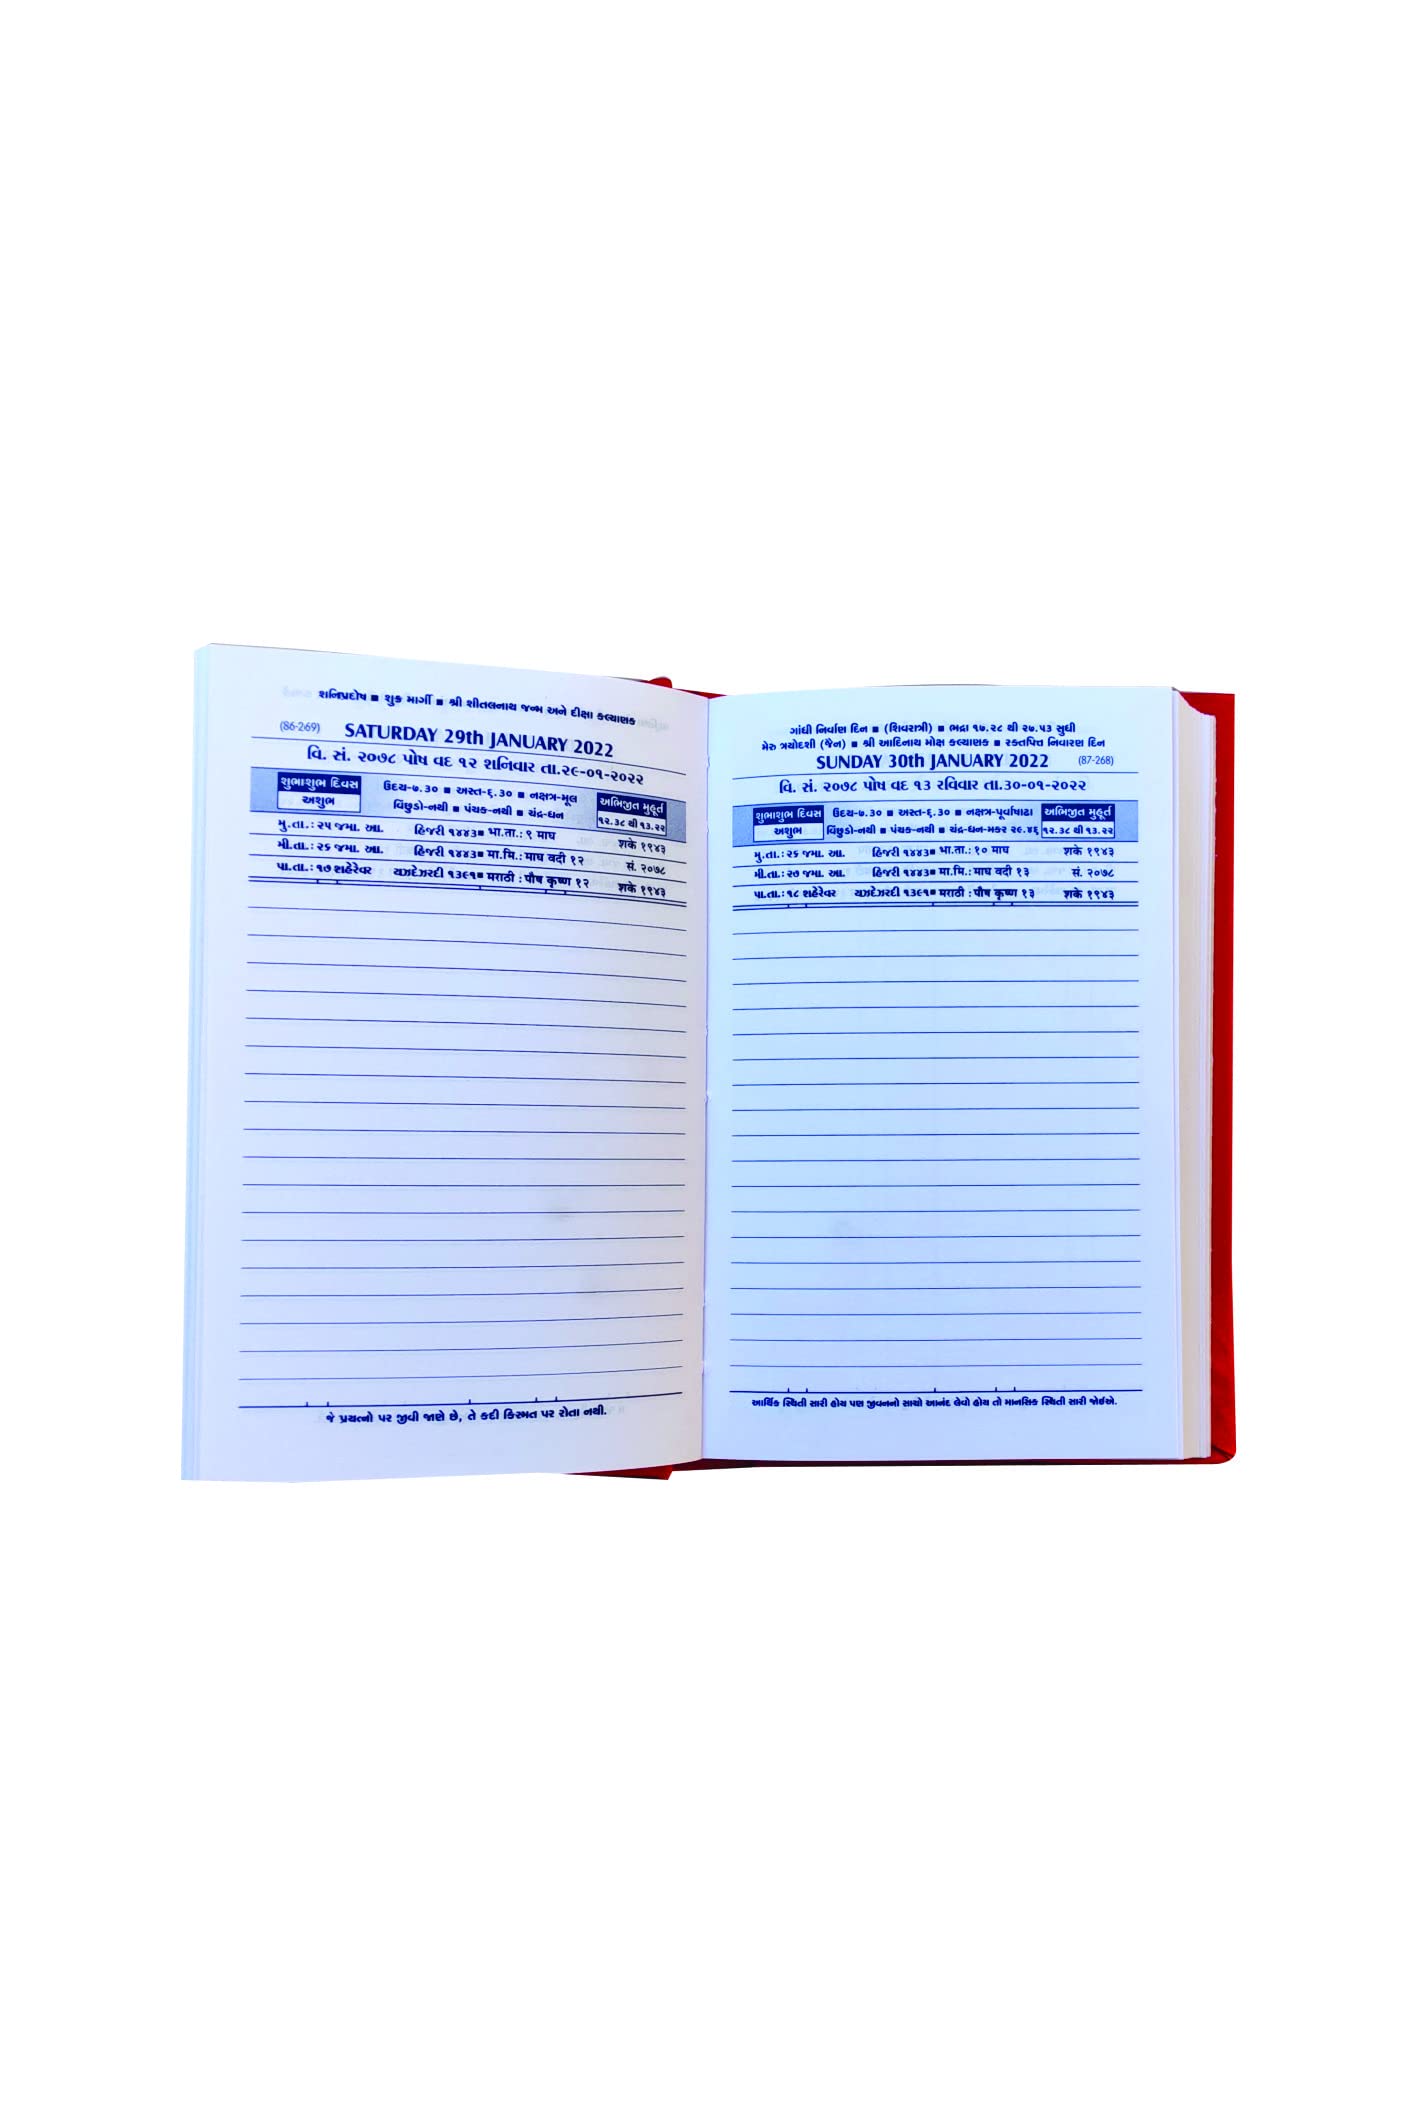 શનિપ્રદોષ ■ શુક્ર માર્ગી ■ શ્રી શીતલનાથ જન્મ અને દીક્ષા કલ્યાણક
(86-269) SATURDAY 29th JANUARY 2022
વિ. સં. ૨૦૭૮ પોષ વદ ૧૨ શનિવાર તા.૨૯-૦૧-૨૦૨૨
શુભાશુભ દિવસ ઉદય-૭.૩૦ ■ અસ્ત-૬.૩૦ ■ નક્ષત્ર-મૂલ અભિજીત મુહૂર્ત
અશુભ વિંછુડો-નથી ■ પંચક-નથી ■ ચંદ્ર-ધન ૧૨.૩૮ થી ૧૩.૨૨
મુ.તા.: ૨૫ જમા. આ. હિજરી ૧૪૪૩■ ભા.તા.: ૯ માઘ શકે ૧૯૪૩
મી.તા.: ૨૬ જમા. આ. હિજરી ૧૪૪૩■ મા.મિ.: માઘ વદી ૧૨ સં. ૨૦૭૮
પા.તા.: ૧૭ શહેરેવર યઝદેઝરદી ૧૩૯૧■ मराठी : पौष कृष्ण १२ शके १९४३
જે પ્રયત્નો પર જીવી જાણે છે, તે કદી કિસ્મત પર રોતા નથી.
ગાંધી નિર્વાણ દિન ■ (શિવરાત્રી) ■ ભદ્રા ૧૭.૨૮ થી ૨૭.૫૩ સુધી
મેરુ ત્રયોદશી (જૈન) ■ શ્રી આદિનાથ મોક્ષ કલ્યાણક ■ રક્તપિત્ત નિવારણ દિન
SUNDAY 30th JANUARY 2022 (87-268)
વિ. સં. ૨૦૭૮ પોષ વદ ૧૩ રવિવાર તા.૩૦-૦૧-૨૦૨૨
શુભાશુભ દિવસ ઉદય-૭.૩૦ ■ અસ્ત-૬.૩૦ ■ નક્ષત્ર-પૂર્વાષાઢા અભિજીત મુહૂર્ત
અશુભ વિંછુડો-નથી ■ પંચક-નથી ■ ચંદ્ર-ધન-મકર ૨૯.૪૬ ૧૨.૩૮ થી ૧૩.૨૨
મુ.તા.: ૨૬ જમા. આ. હિજરી ૧૪૪૩■ ભા.તા.: ૧૦ માઘ શકે ૧૯૪૩
મી.તા.: ૨૭ જમા. આ. હિજરી ૧૪૪૩■ મા.મિ.: માઘ વદી ૧૩ સં. ૨૦૭૮
પા.તા.: ૧૮ શહેરેવર યઝદેઝરદી ૧૩૯૧■ मराठी : पौष कृष्ण १३ शके १९४३
આર્થિક સ્થિતી સારી હોય પણ જીવનનો સાચો આનંદ લેવો હોય તો માનસિક સ્થિતી સારી જોઈએ.